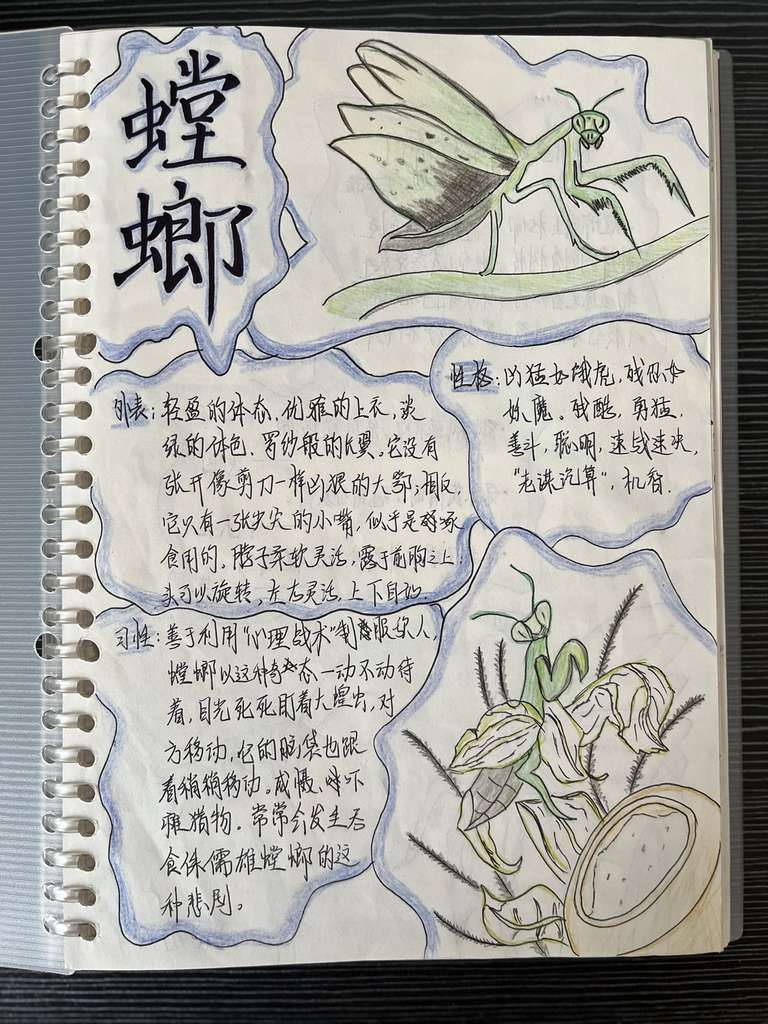 螳
螂
外表：轻盈的体态，优雅的上衣，淡
绿的体色，罗纱般的长翼。它没有
张开像剪刀一样凶狠的大鄂；相反，
它只有一张尖尖的小嘴，似于是
食用的。脖子柔软灵活，露于前胸之上
头可以旋转，左右灵活，上下自
性格：凶猛如饿虎，残忍如
妖魔。残酷，勇猛，
善斗，聪明，速战速决，
“老谋汔算”，机智.
习性：善于利用“心理战术”制服敌人，
螳螂以这种态一动不动待
着，目光死死盯着大蝗虫，对
方移动，它的脑袋也跟
着稍稍移动。威慑、呼吓
猎物。常常会发生吞
食侏儒雄螳螂的这
种悲剧。